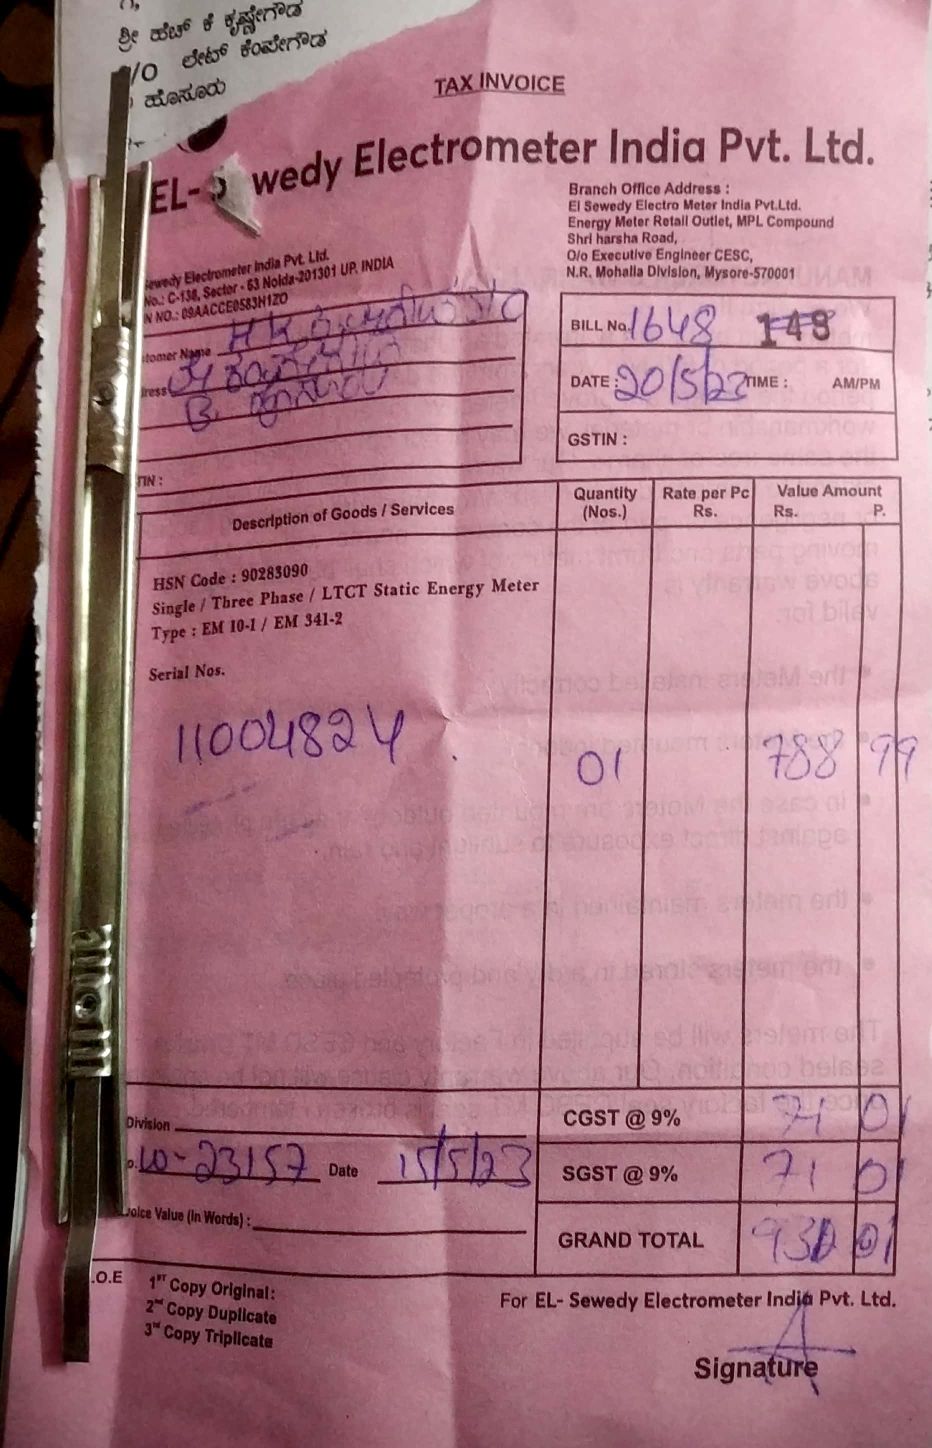 ಶ್ರೀ ಹೆಚ್ ಕೆ ಕೃಷ್ಣೇಗೌಡ
/O ಲೇಟ್ ಕೆಂಪೇಗೌಡ
ಹೊಸೂರು
TAX INVOICE
EL- wedy Electrometer India Pvt. Ltd.
Branch Office Address :
El Sewedy Electro Meter India Pvt.Ltd.
Energy Meter Retail Outlet, MPL Compound
Shri harsha Road,
O/o Executive Engineer CESC,
N.R. Mohalla Division, Mysore-570001
ewedy Electrometer India Pvt. Ltd.
No.: C-138, Sector - 63 Noida-201301 UP. INDIA
N NO.: 09AACCE0583H1ZO
tomer Name
ress
TIN :
BILL No. 1648 148
DATE : 20/5/23 TIME : AM/PM
GSTIN :
Description of Goods / Services Quantity (Nos.) Rate per Pc Rs. Value Amount Rs. P.
HSN Code : 90283090
Single / Three Phase / LTCT Static Energy Meter
Type : EM 10-1 / EM 341-2
Serial Nos.
11004824 01 788 99
CGST @ 9% 71 01
Division
SGST @ 9% 71 01
o. 10-23157 Date 15/5/23
oice Value (In Words) :
GRAND TOTAL 01
.O.E 1st Copy Original:
2nd Copy Duplicate
3rd Copy Triplicate
For EL- Sewedy Electrometer India Pvt. Ltd.
Signature